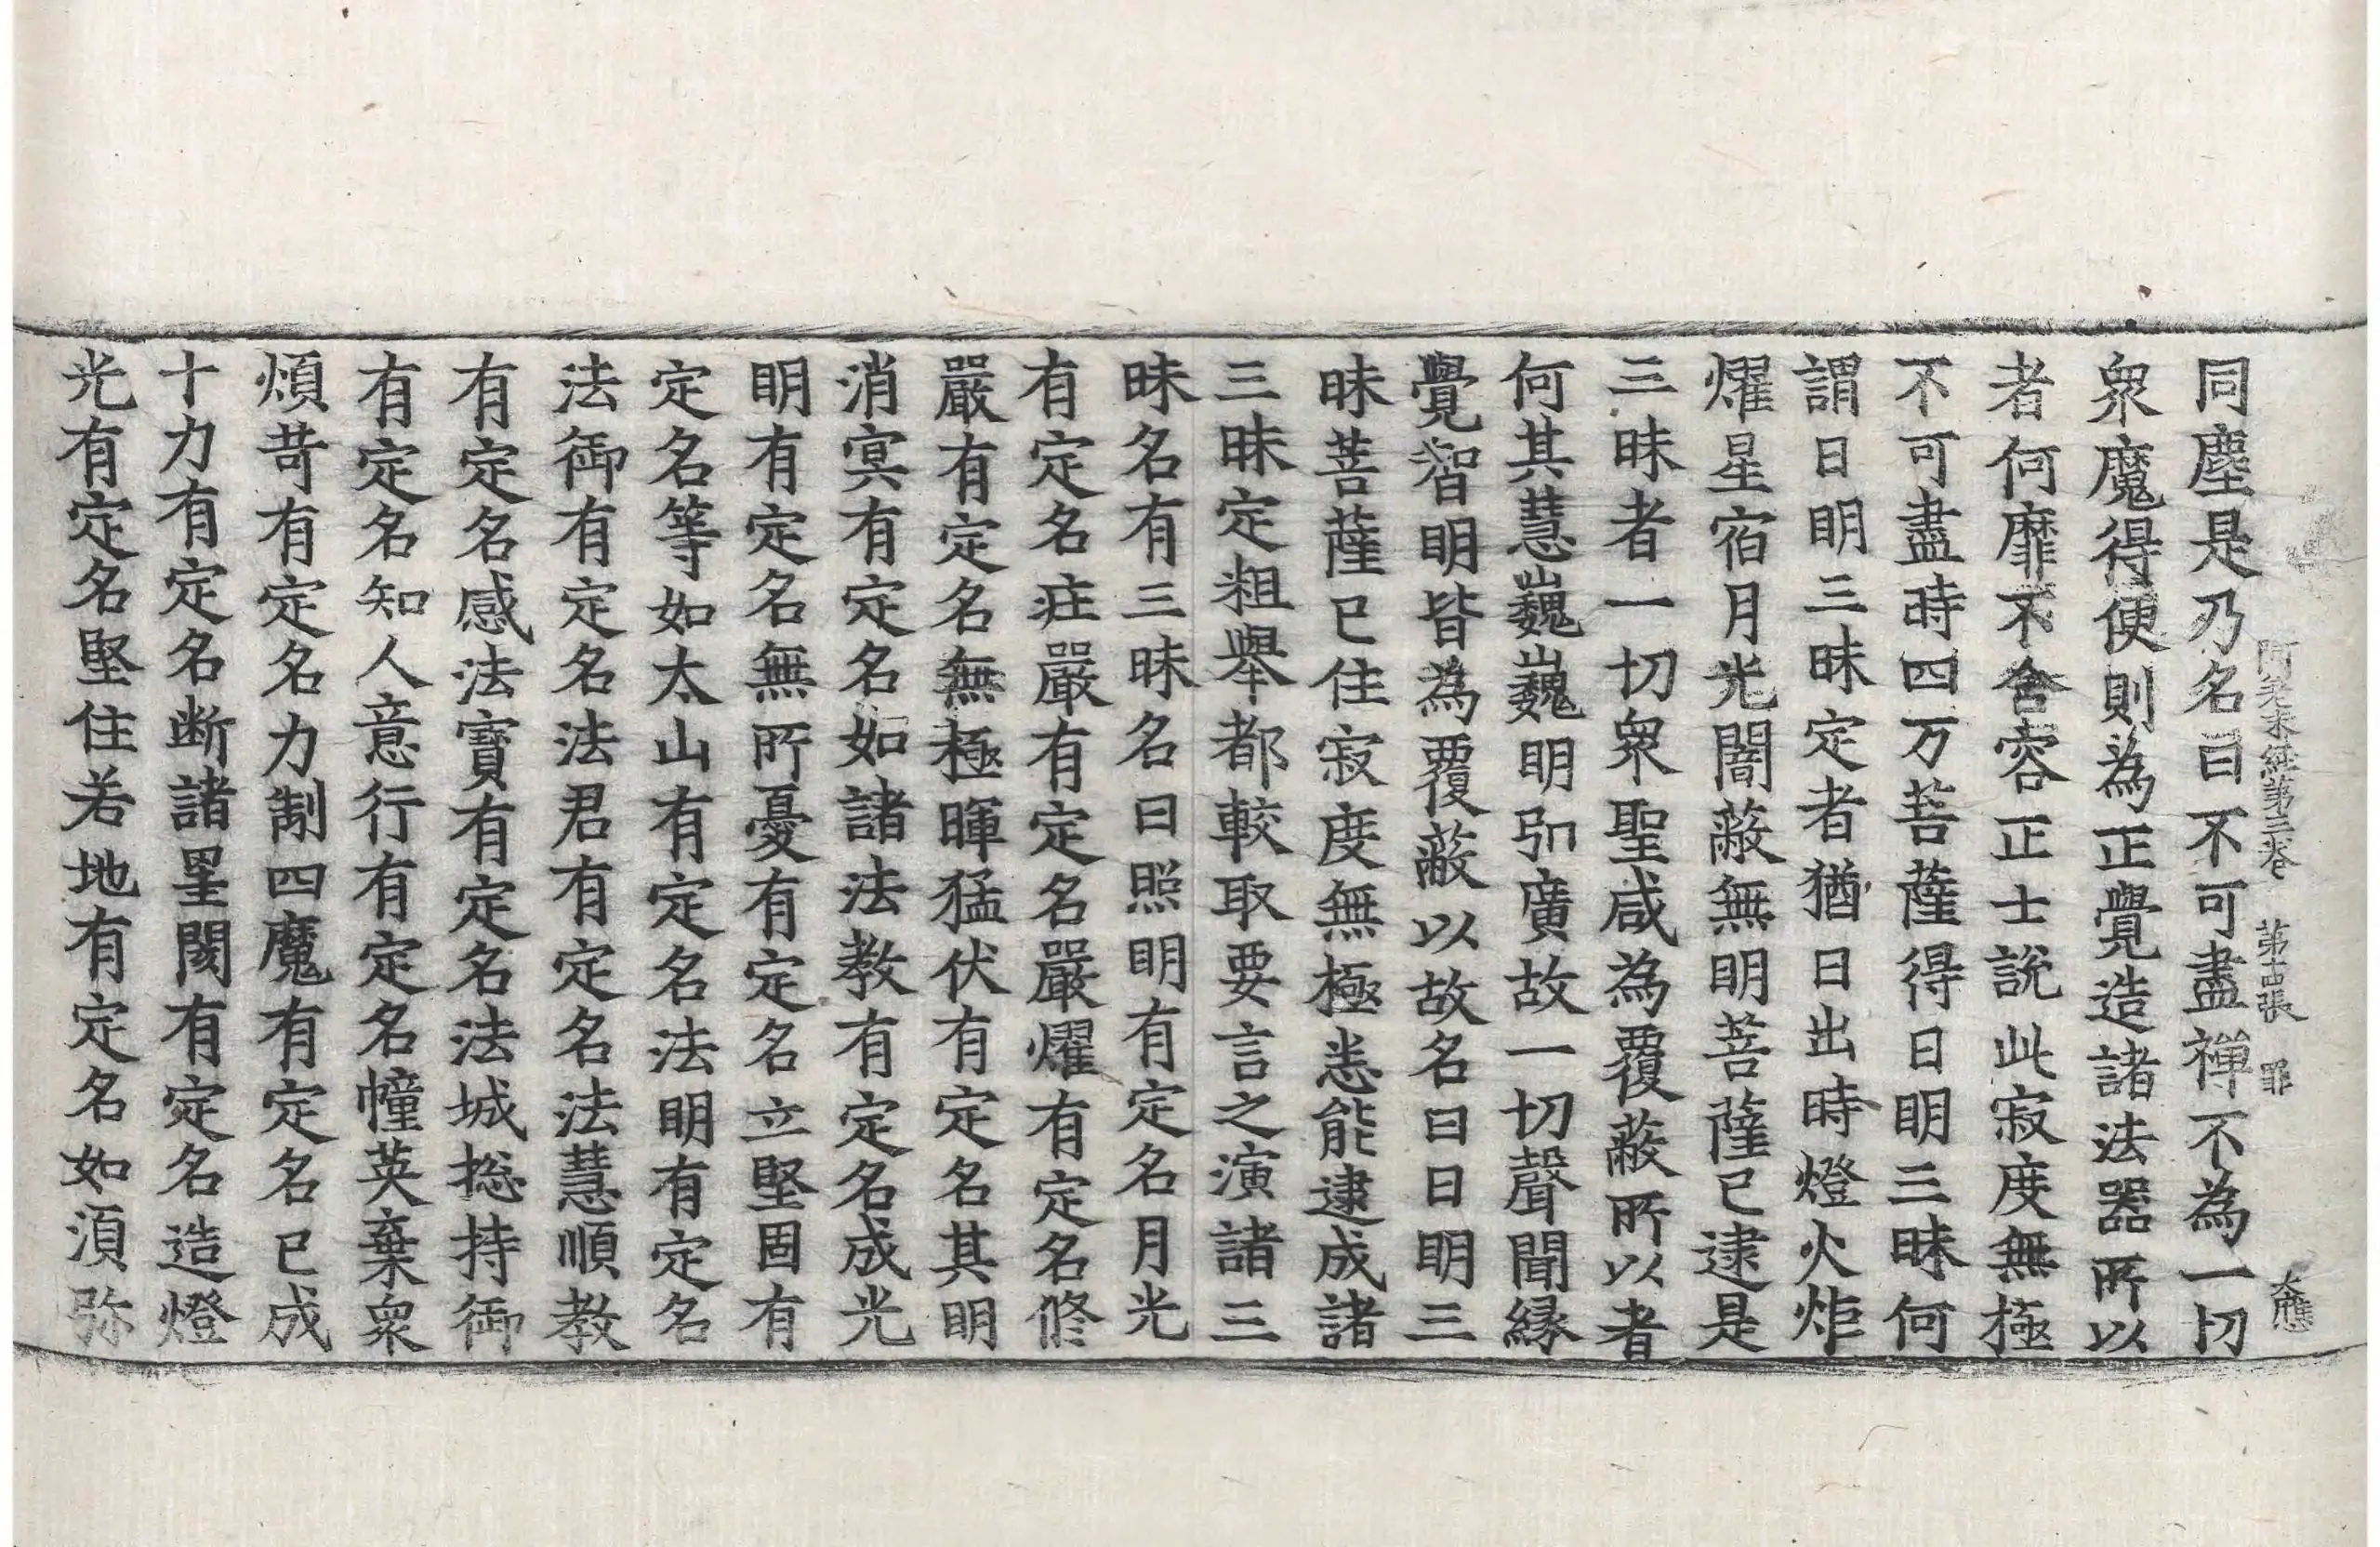 阿差末經第三卷　第古張　罪　大應
同塵是乃名曰不可盡禅不為一切
衆魔得便則為正覺造諸法器所以
者何靡不舍容正士說此寂度無極
不可盡時四万菩薩得日明三昧何
謂日明三昧定者猶日出時燈火炬
燿星宿月光闇蔽無明菩薩已逮是
三昧者一切衆聖咸為覆蔽所以者
何其慧巍巍明引廣故一切聲聞縁
覺智明皆為覆蔽以故名曰日明三
昧菩薩已住寂度無極悉能逮成諸
三昧定粗舉都較取要言之演諸三
昧名有三昧名曰照明有定名月光
有定名疘嚴有定名嚴燿有定名修
嚴有定名無極暉猛伏有定名其明
消㝠有定名如諸法教有定名成光
明有定名無所憂有定名立堅固有
定名等如太山有定名法明有定名
法御有定名法君有定名法慧順教
有定名感法寶有定名法城捴持御
有定名知人意行有定名幢英棄衆
煩苛有定名力制四魔有定名已成
十力有定名断諸罣閡有定名造燈
光有定名堅住若地有定名如湏弥